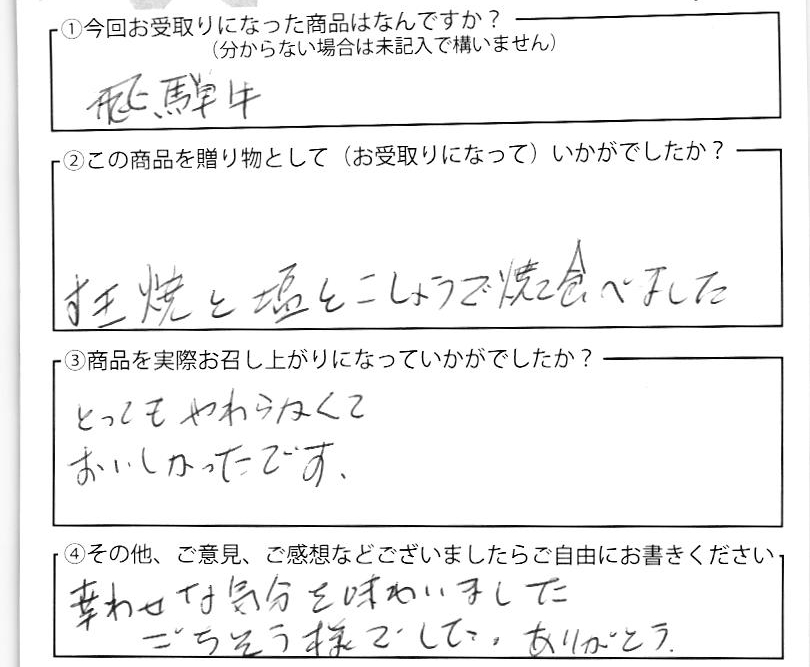 ①今回お受取りになった商品はなんですか？
（分からない場合は未記入で構いません）
飛騨牛
②この商品を贈り物として（お受取りになって）いかがでしたか？
焼と塩とこしょうで焼て食べました
③商品を実際お召し上がりになっていかがでしたか？
とってもやわらなくて
おいしかったです、
④その他、ご意見、ご感想などございましたらご自由にお書きください
幸わせな気分を味わいました
ごちそう様でした。ありがとう.